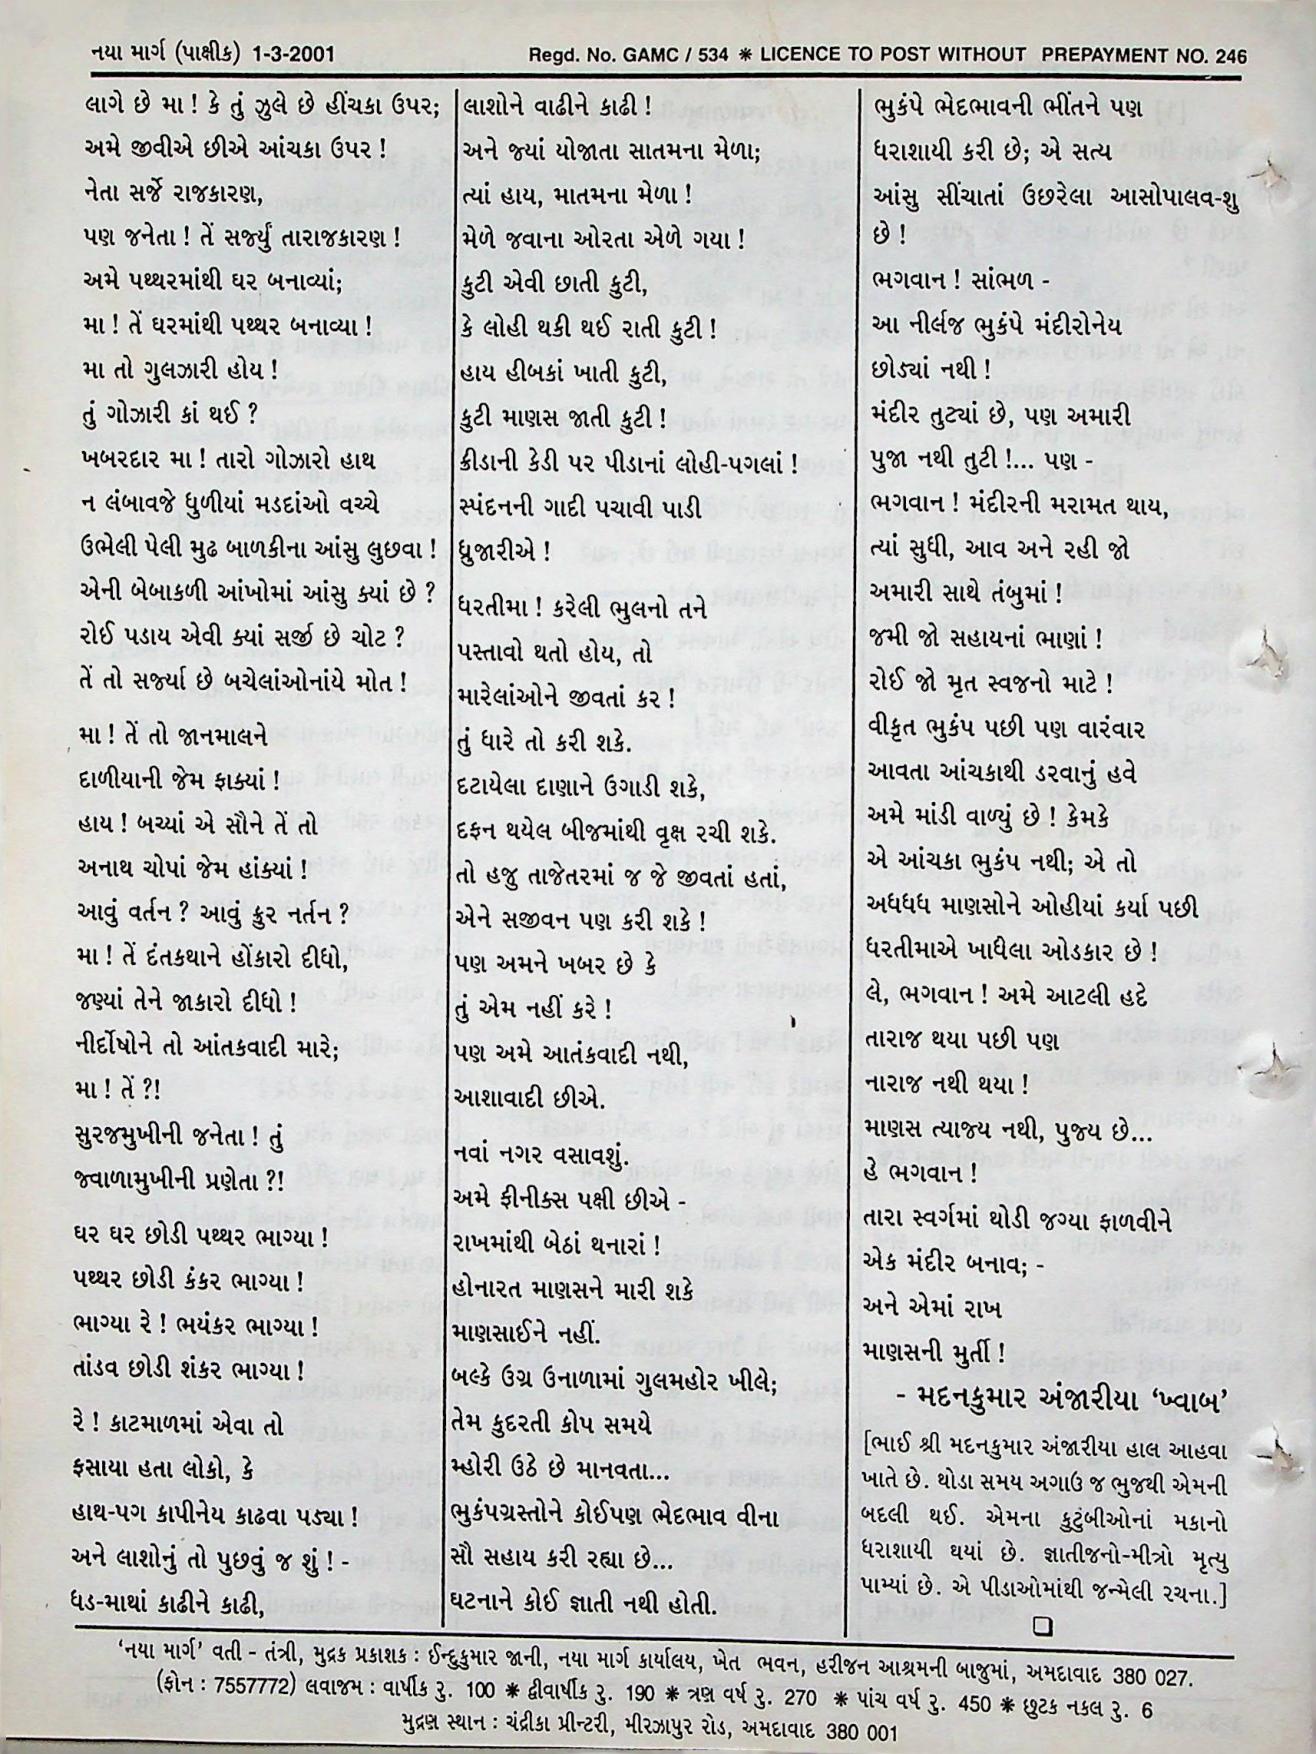 નયા માર્ગ (પાક્ષીક) 1-3-2001
Regd. No. GAMC / 534 ✷ LICENCE TO POST WITHOUT PREPAYMENT NO. 246
લાગે છે મા ! કે તું ઝુલે છે હીંચકા ઉપર;
અમે જીવીએ છીએ આંચકા ઉપર !
નેતા સર્જે રાજકારણ,
પણ જનેતા ! તેં સર્જ્યું તારાજકારણ !
અમે પથ્થરમાંથી ઘર બનાવ્યાં;
મા ! તેં ઘરમાંથી પથ્થર બનાવ્યા !
મા તો ગુલઝારી હોય !
તું ગોઝારી કાં થઈ ?
ખબરદાર મા ! તારો ગોઝારો હાથ
ન લંબાવજે ધુળીયાં મડદાંઓ વચ્ચે
ઉભેલી પેલી મુઢ બાળકીના આંસુ લુછવા !
એની બેબાકળી આંખોમાં આંસુ ક્યાં છે ?
રોઈ પડાય એવી ક્યાં સર્જી છે ચોટ ?
તેં તો સર્જ્યા છે બચેલાંઓનાંયે મોત !
મા ! તેં તો જાનમાલને
દાળીયાની જેમ ફાક્યાં !
હાય ! બચ્યાં એ સૌને તેં તો
અનાથ ચોપાં જેમ હાંક્યાં !
આવું વર્તન ? આવું ક્રુર નર્તન ?
મા ! તેં દંતકથાને હોંકારો દીધો,
જણ્યાં તેને જાકારો દીધો !
નીર્દોષોને તો આંતકવાદી મારે;
મા ! તેં ?!
સુરજમુખીની જનેતા ! તું
જ્વાળામુખીની પ્રણેતા ?!
ઘર ઘર છોડી પથ્થર ભાગ્યા !
પથ્થર છોડી કંકર ભાગ્યા !
ભાગ્યા રે ! ભયંકર ભાગ્યા !
તાંડવ છોડી શંકર ભાગ્યા !
રે ! કાટમાળમાં એવા તો
ફસાયા હતા લોકો, કે
હાથ-પગ કાપીનેય કાઢવા પડ્યા !
અને લાશોનું તો પુછવું જ શું ! -
ધડ-માથાં કાઢીને કાઢી,
લાશોને વાઢીને કાઢી !
અને જ્યાં યોજાતા સાતમના મેળા;
ત્યાં હાય, માતમના મેળા !
મેળે જવાના ઓરતા એળે ગયા !
કુટી એવી છાતી કુટી,
કે લોહી થકી થઈ રાતી કુટી !
હાય હીબકાં ખાતી કુટી,
કુટી માણસ જાતી કુટી !
ક્રીડાની કેડી પર પીડાનાં લોહી-પગલાં !
સ્પંદનની ગાદી પચાવી પાડી
ધ્રુજારીએ !
ધરતીમા ! કરેલી ભુલનો તને
પસ્તાવો થતો હોય, તો
મારેલાંઓને જીવતાં કર !
તું ધારે તો કરી શકે.
દટાયેલા દાણાને ઉગાડી શકે,
દફન થયેલ બીજમાંથી વૃક્ષ રચી શકે.
તો હજુ તાજેતરમાં જ જે જીવતાં હતાં,
એને સજીવન પણ કરી શકે !
પણ અમને ખબર છે કે
તું એમ નહીં કરે !
પણ અમે આતંકવાદી નથી,
આશાવાદી છીએ.
નવાં નગર વસાવશું.
અમે ફીનીક્સ પક્ષી છીએ -
રાખમાંથી બેઠાં થનારાં !
હોનારત માણસને મારી શકે
માણસાઈને નહીં.
બલ્કે ઉગ્ર ઉનાળામાં ગુલમહોર ખીલે;
તેમ કુદરતી કોપ સમયે
મ્હોરી ઉઠે છે માનવતા...
ભુકંપગ્રસ્તોને કોઈપણ ભેદભાવ વીના
સૌ સહાય કરી રહ્યા છે...
ઘટનાને કોઈ જ્ઞાતી નથી હોતી.
ભુકંપે ભેદભાવની ભીંતને પણ
ધરાશાયી કરી છે; એ સત્ય
આંસુ સીંચાતાં ઉછરેલા આસોપાલવ-શુ
છે !
ભગવાન ! સાંભળ -
આ નીર્લજ ભુકંપે મંદીરોનેય
છોડ્યાં નથી !
મંદીર તુટ્યાં છે, પણ અમારી
પુજા નથી તુટી !... પણ -
ભગવાન ! મંદીરની મરામત થાય,
ત્યાં સુધી, આવ અને રહી જો
અમારી સાથે તંબુમાં !
જમી જો સહાયનાં ભાણાં !
રોઈ જો મૃત સ્વજનો માટે !
વીકૃત ભુકંપ પછી પણ વારંવાર
આવતા આંચકાથી ડરવાનું હવે
અમે માંડી વાળ્યું છે ! કેમકે
એ આંચકા ભુકંપ નથી; એ તો
અધધધ માણસોને ઓહીયાં કર્યા પછી
ધરતીમાએ ખાધેલા ઓડકાર છે !
લે, ભગવાન ! અમે આટલી હદે
તારાજ થયા પછી પણ
નારાજ નથી થયા !
માણસ ત્યાજ્ય નથી, પુજ્ય છે...
હે ભગવાન !
તારા સ્વર્ગમાં થોડી જગ્યા ફાળવીને
એક મંદીર બનાવ; -
અને એમાં રાખ
માણસની મુર્તી !
- મદનકુમાર અંજારીયા ‘ખ્વાબ’
[ભાઈ શ્રી મદનકુમાર અંજારીયા હાલ આહવા
ખાતે છે. થોડા સમય અગાઉ જ ભુજથી એમની
બદલી થઈ. એમના કુટુંબીઓનાં મકાનો
ધરાશાયી થયાં છે. જ્ઞાતીજનો-મીત્રો મૃત્યુ
પામ્યાં છે. એ પીડાઓમાંથી જન્મેલી રચના.]
‘નયા માર્ગ’ વતી - તંત્રી, મુદ્રક પ્રકાશક : ઈન્દુકુમાર જાની, નયા માર્ગ કાર્યાલય, ખેત ભવન, હરીજન આશ્રમની બાજુમાં, અમદાવાદ 380 027.
(ફોન : 7557772) લવાજમ : વાર્ષીક રુ. 100 ✷ દ્વીવાર્ષીક રુ. 190 ✷ ત્રણ વર્ષ રુ. 270 ✷ પાંચ વર્ષ રુ. 450 ✷ છુટક નકલ રુ. 6
મુદ્રણ સ્થાન : ચંદ્રીકા પ્રીન્ટરી, મીરઝાપુર રોડ, અમદાવાદ 380 001